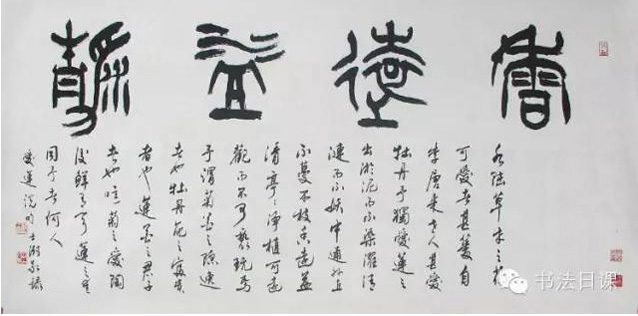 香遠益靜
水陸草木之花
可愛者甚蕃自
李唐来世人甚愛
牡丹予獨愛蓮之
出淤泥而不染濯清
漣而不妖中通外直
不蔓不枝香遠益
清亭亭淨植可遠
觀而不可褻玩焉
予謂菊花之隱逸
者也牡丹花之富貴
者也蓮花之君子
者也噫菊之愛陶
後鮮有聞蓮之愛
同予者何人
愛蓮説
书法日课